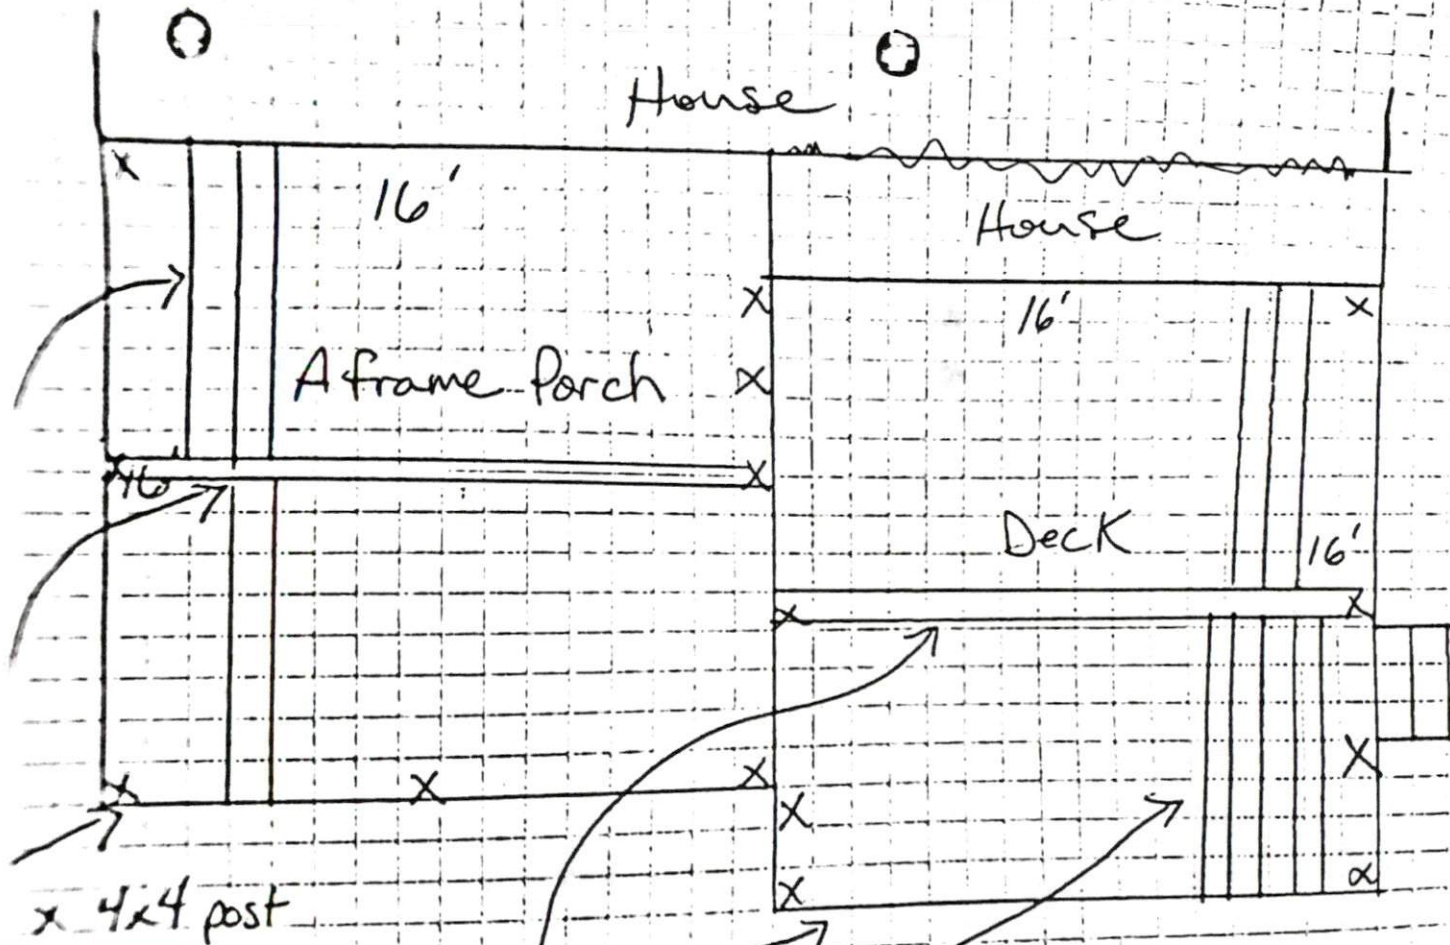 House
16'
House
16'
A frame Porch
16'
Deck
16'
x 4x4 post